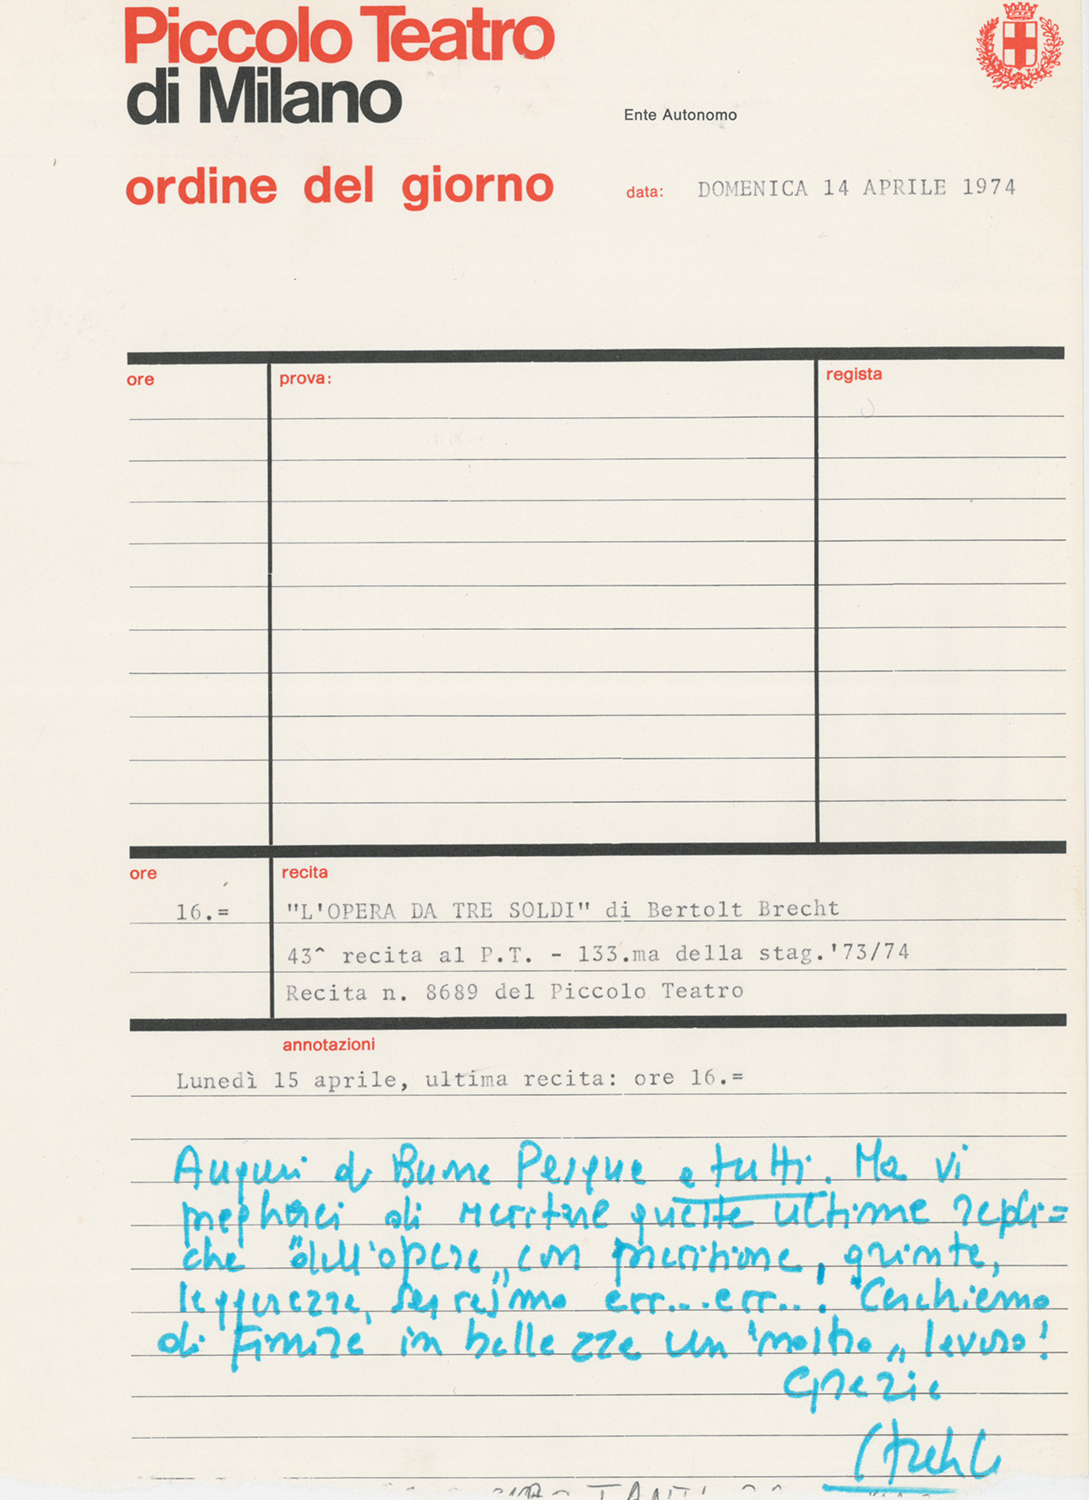 Piccolo Teatro
di Milano
Ente Autonomo
ordine del giorno
data: DOMENICA 14 APRILE 1974
ore prova: regista
ore recita
16.= "L'OPERA DA TRE SOLDI" di Bertolt Brecht
43^ recita al P.T. - 133.ma della stag.'73/74
Recita n. 8689 del Piccolo Teatro
annotazioni
Lunedì 15 aprile, ultima recita: ore 16.=
Auguri di Buone Pasque a tutti. Ma vi
pregherei di meritare queste ultime repli=
che "dell'opera„ con precisione, grinta,
leggerezza, err...err..! Cerchiamo
di finire in bellezze un "nostro„ lavoro!
Grazie
Strehler
TANTI